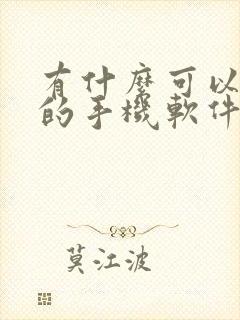 有什麼可以
的手機軟件
莫江波